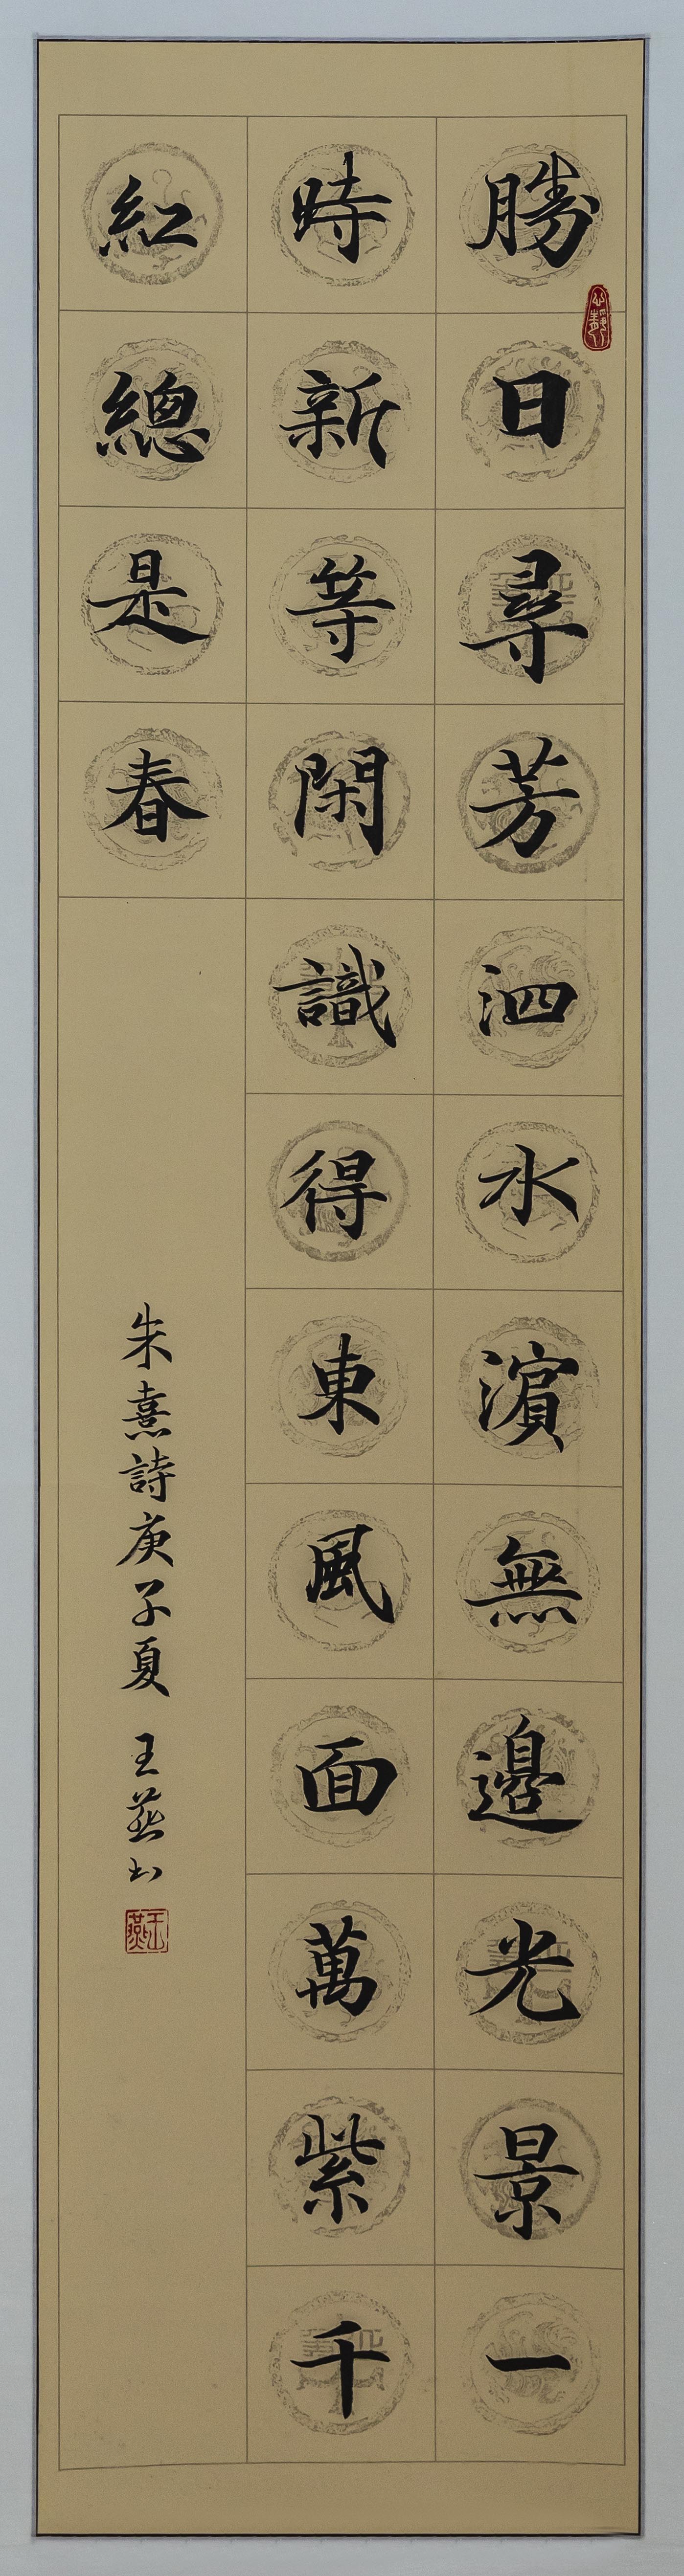 勝日尋芳泗水濵無邊光景一
時新等閑識得東風面萬紫千
紅總是春
朱熹詩庚子夏 王燕书
王燕